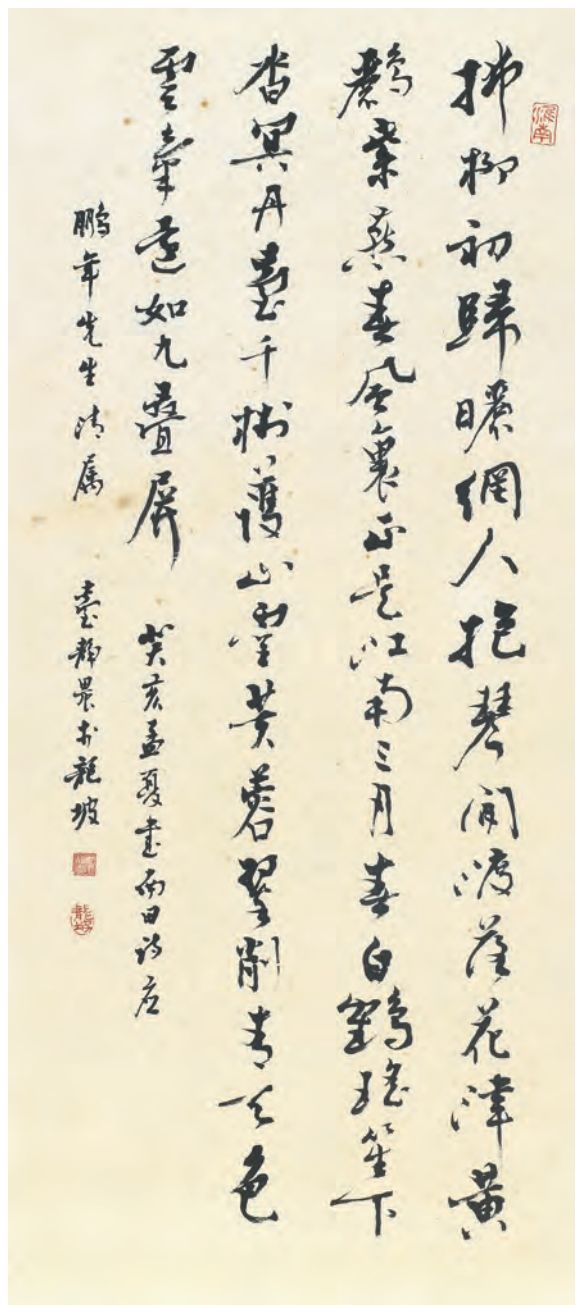 拂柳初歸曬網人抱琴閒渡落花津黃
鸝紫燕春風裏正是江南三月春白鶴瑤笙下
杳冥丹臺千樹護山靈芙蓉翠削青天色
雲氣還如九疊屏
癸亥孟夏書南田詩應
鵬年先生清屬
臺靜農于龍坡